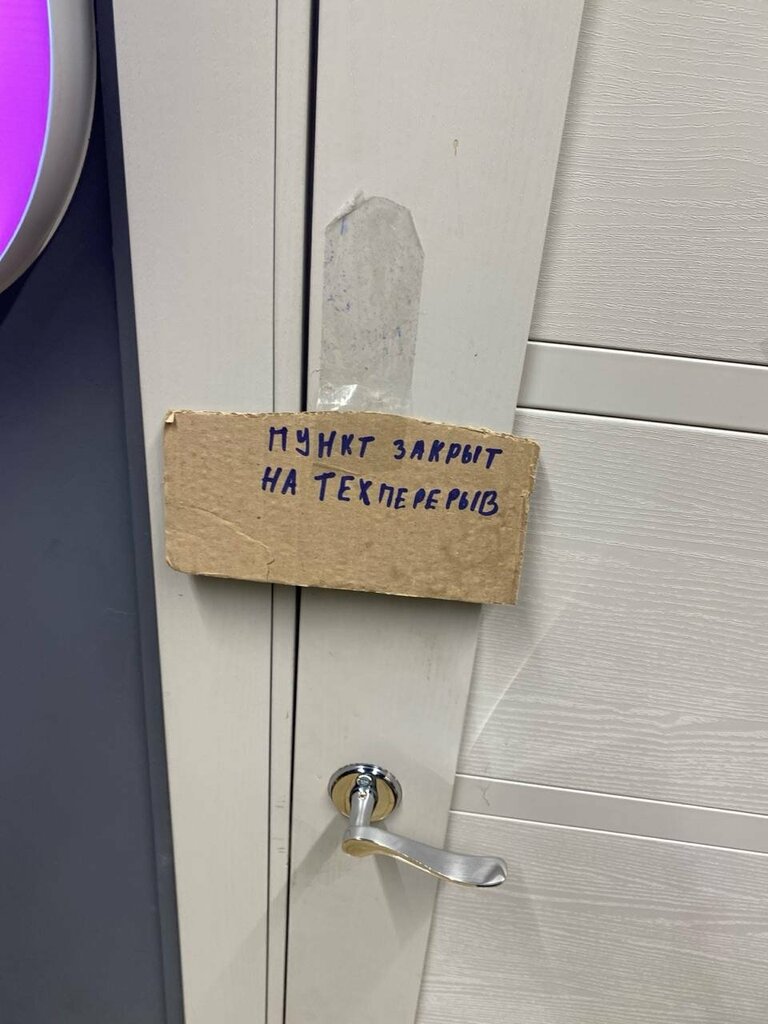 ПУНКТ ЗАКРЫТ
НА ТЕХПЕРЕРЫВ